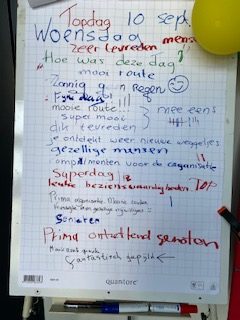 Topdag 10 sept.
Woensdag
zeer tevreden mensen
Hoe was deze dag?
mooi route
Zonnig g n regen
Fijne dag !!!
mooie route !!!
super mooi
dik tevreden
mee eens
je ontdekt weer nieuwe weggetjes
gezellige mensen
complimenten voor de organisatie
Superdag!
leuke bezienswaardigheden TOP
Prima organisatie. Mooie route
gezellige vrijwilligers
Genieten
Prima ontzettend genoten
fantastisch gefietst
quantore